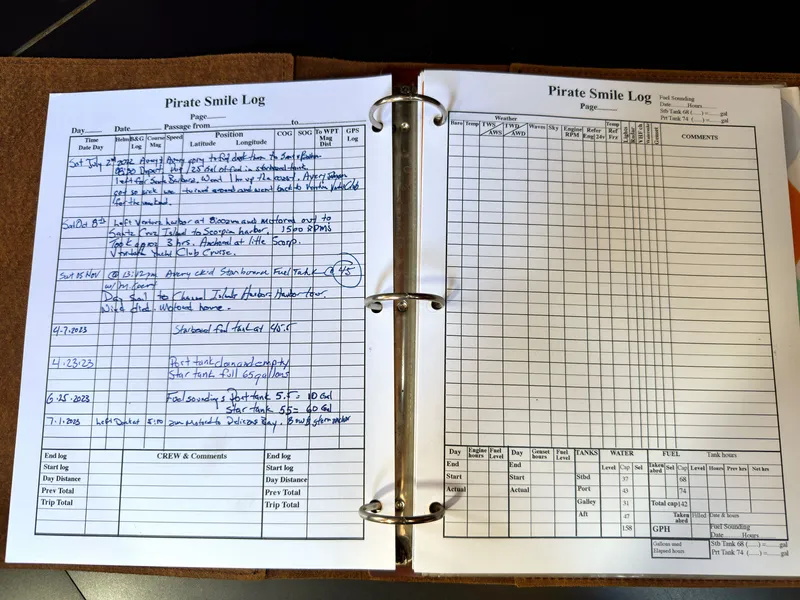 Pirate Smile Log
Page
Day Date Passage from to
Time Date Day Helm B&G Log Course Mag Speed Position Latitude Longitude COG SOG To WPT Mag Dist GPS Log
Sat July 2nd 2022
08:30 Depart. 25 Gal of fuel in starboard tank
left for Santa Barbara. Went 1 hr up the coast. Avery
got so sick we turned around and went back to Ventura
for the weekend.
Sat Oct 8th Left Ventura harbor at 8:00am and motored out to
Santa Cruz Island to Scorpion harbor. 1500 RPMs
Took approx 3 hrs. Anchored at little Scorp.
Yacht Club Cruise.
Nov @ 13:12pm Avery ck'd Starboard Fuel Tank @ 45
w/
Day Sail to Channel Islands Harbor - Harbor tour.
Wind died. Motored home.
4-7-2023 Starboard fuel tank at 45.5
4-23-23 Port tank clean and empty
Star tank full 65 gallons
6-25-2023 Fuel soundings Port tank 5.5 = 10 Gal
Star tank 55 = 60 Gal
7-1-2023 Left Dock at Motored to Bay. Bow & stern anchor
End log CREW & Comments End log
Start log Start log
Day Distance Day Distance
Prev Total Prev Total
Trip Total Trip Total
Pirate Smile Log
Page
Fuel Sounding
Date Hours
Stb Tank 68 ( ) = gal
Prt Tank 74 ( ) = gal
Weather
Baro Temp TWS AWS TWD AWD Waves Sky Engine RPM Refer Eng 24v Temp Ref Frz Lights Radar VHF ch Genset COMMENTS
Day Engine hours Fuel Level Day Genset hours Fuel Level TANKS WATER FUEL Tank hours
End End Level Cap Sel Taken abrd Sel Cap Level Hours Prev hrs Net hrs
Start Start Stbd 37 68
Actual Actual Port 43 74
Galley 31 Total cap 142
Aft 47 Taken abrd Filled Date & hours
158 GPH Fuel Sounding
Date Hours
Gallons used Stb Tank 68 ( ) = gal
Elapsed hours Prt Tank 74 ( ) = gal